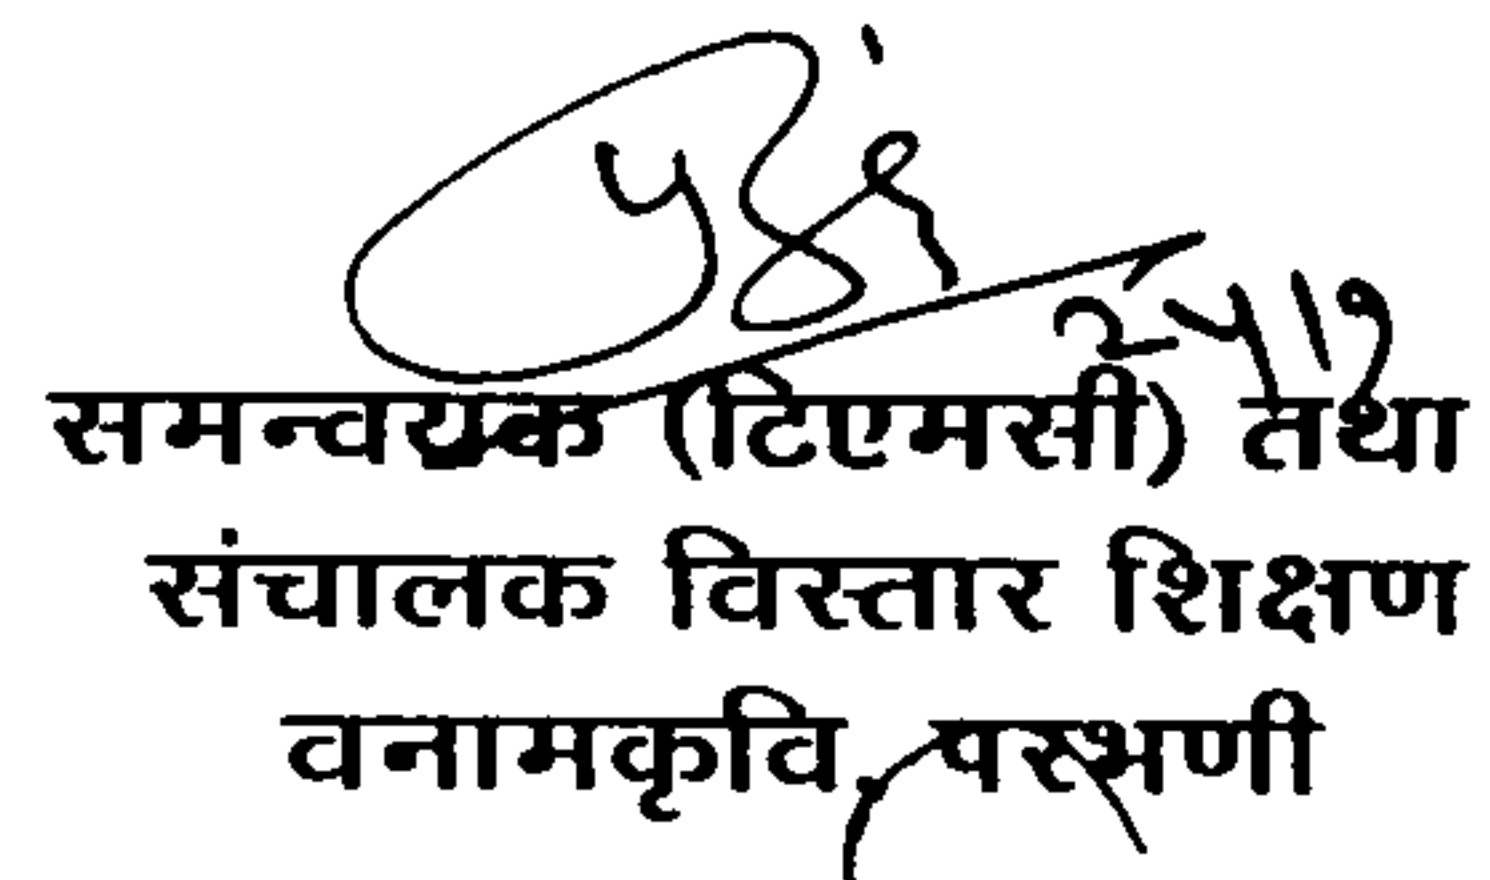 २५/७
समन्वयक (टिएमसी) तथा
संचालक विस्तार शिक्षण
वनामकृवि, परभणी